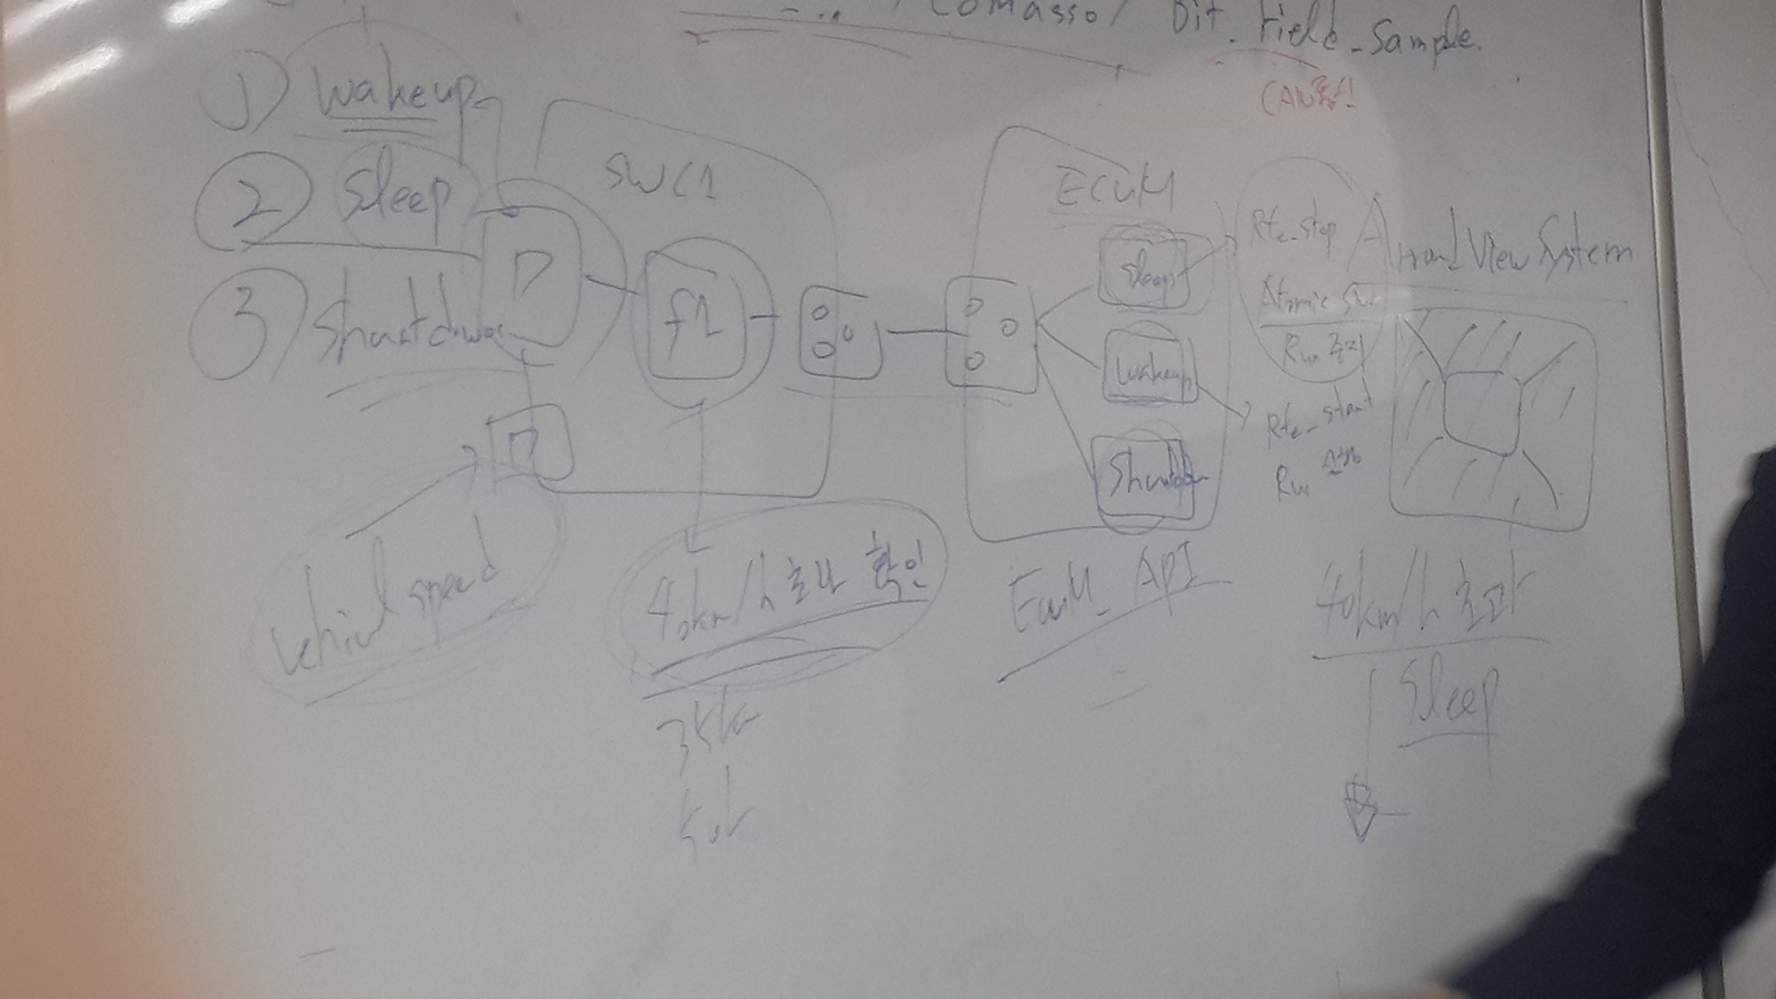 Comasso/ Bit_Field_Sample.
CAN통신
1) Wakeup
2) Sleep
3) Shautdown
SWC1
D
f1
D
Vehicul speed
40km/h 초과 확인
35k
50k
EcuM
Sleep
Wakeup
Shautdown
EcuM_ApI
Rte_stop
Atomic Swc
Run 중지
Rte_start
Run
Arround View System
40km/h 초과
Sleep